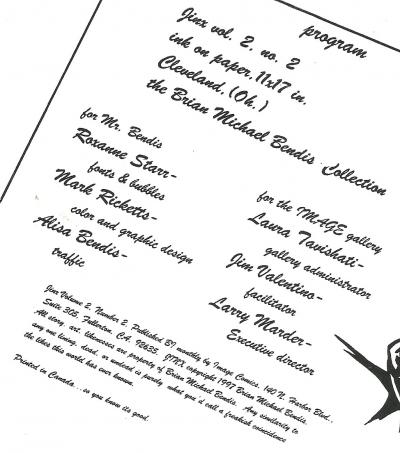 program
Jinx vol. 2, no. 2
ink on paper, 11x17 in.
Cleveland, (Oh.)
the Brian Michael Bendis Collection
for Mr. Bendis
Roxanne Starr-
fonts & bubbles
Mark Ricketts-
color and graphic design
Alisa Bendis-
traffic
for the IMAGE gallery
Laura Tavishati-
gallery administrator
Jim Valentino-
facilitator
Larry Marder-
Executive director
Jinx Volume 2, Number 2, Published BI monthly by Image Comics, 140 N. Harbor Blvd.,
Suite 305, Fullerton, CA, 92635. JINX copyright 1997 Brian Michael Bendis.
All story, art, likenesses are property of Brian Michael Bendis. Any similarity to
any one living, dead, or undead is purely what you'd call a freakish coincidence
the likes this world has ever known.
Printed in Canada...so you know its good.